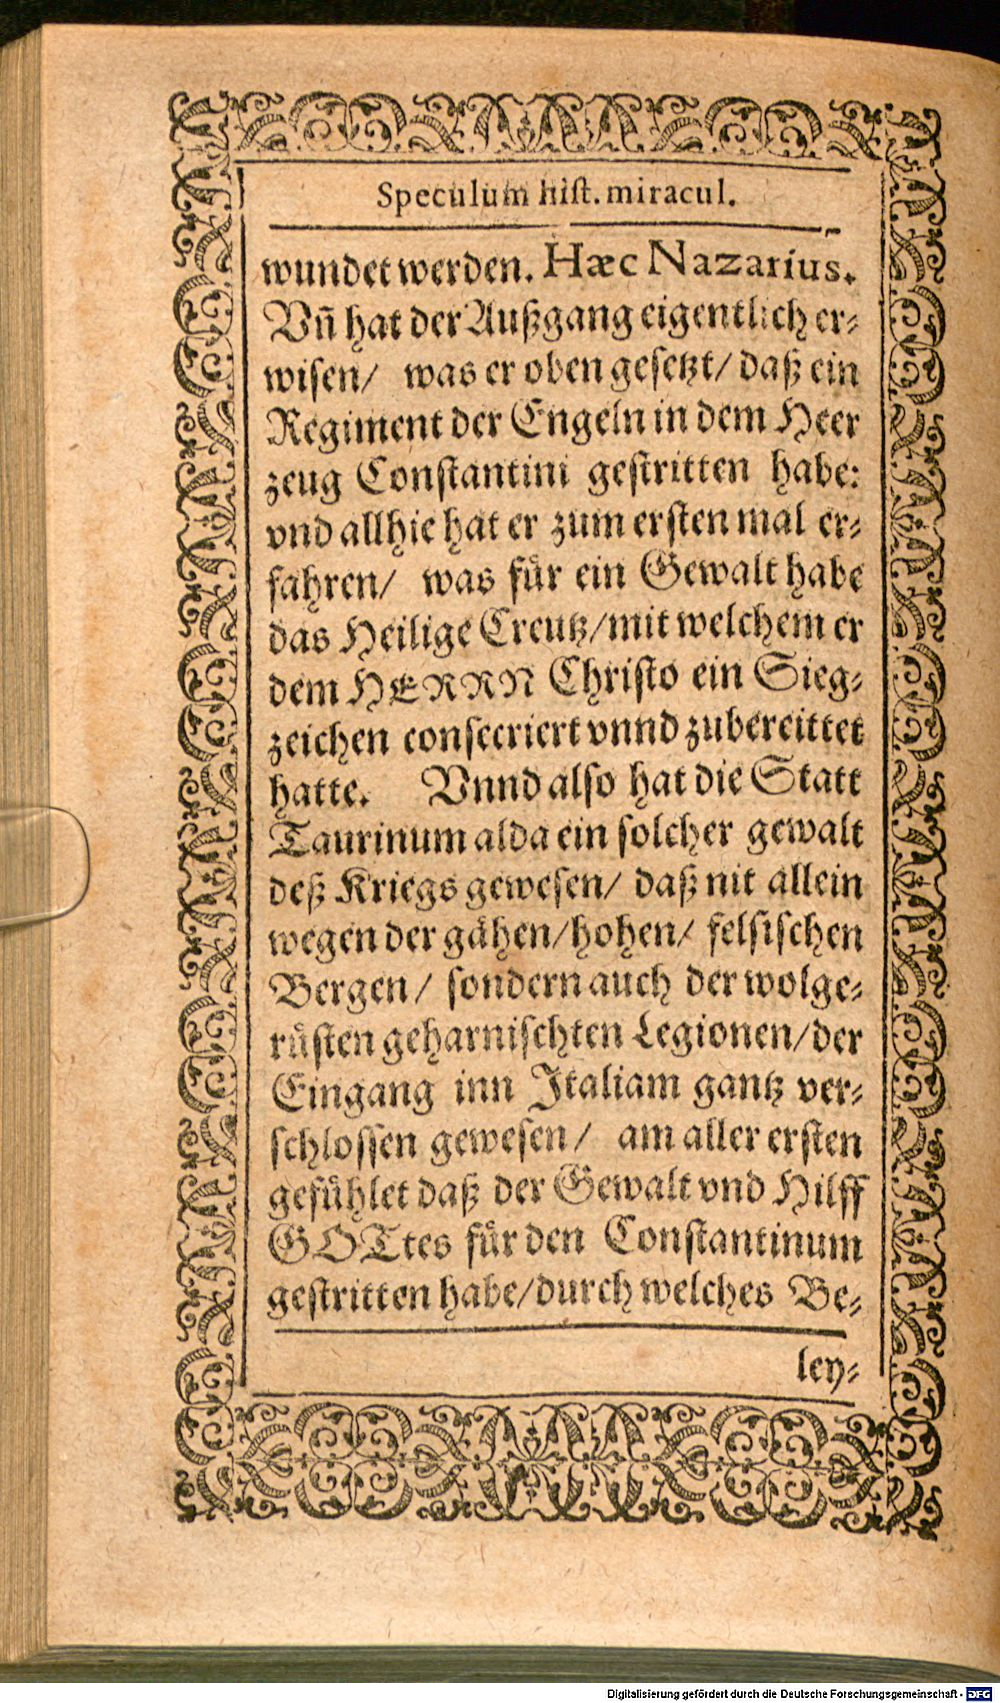 Speculum hist. miracul.
wundet werden. Hæc Nazarius.
Vñ hat der Außgang eigentlich er-
wisen/ was er oben gesetzt/ daß ein
Regiment der Engeln in dem Heer
zeug Constantini gestritten habe:
vnd allhie hat er zum ersten mal er-
fahren/ was für ein Gewalt habe
das Heilige Creutz/mit welchem er
dem HERRN Christo ein Sieg-
zeichen consecriert vnnd zubereittet
hatte. Vnnd also hat die Statt
Taurinum alda ein solcher gewalt
deß Kriegs gewesen/ daß nit allein
wegen der gähen/hohen/ felsischen
Bergen/ sondern auch der wolge-
rüsten geharnischten Legionen/der
Eingang inn Italiam gantz ver-
schlossen gewesen/ am aller ersten
gefühlet daß der Gewalt vnd Hilff
GOTtes für den Constantinum
gestritten habe/durch welches Be-
ley-
Digitalisierung gefördert durch die Deutsche Forschungsgemeinschaft - DFG